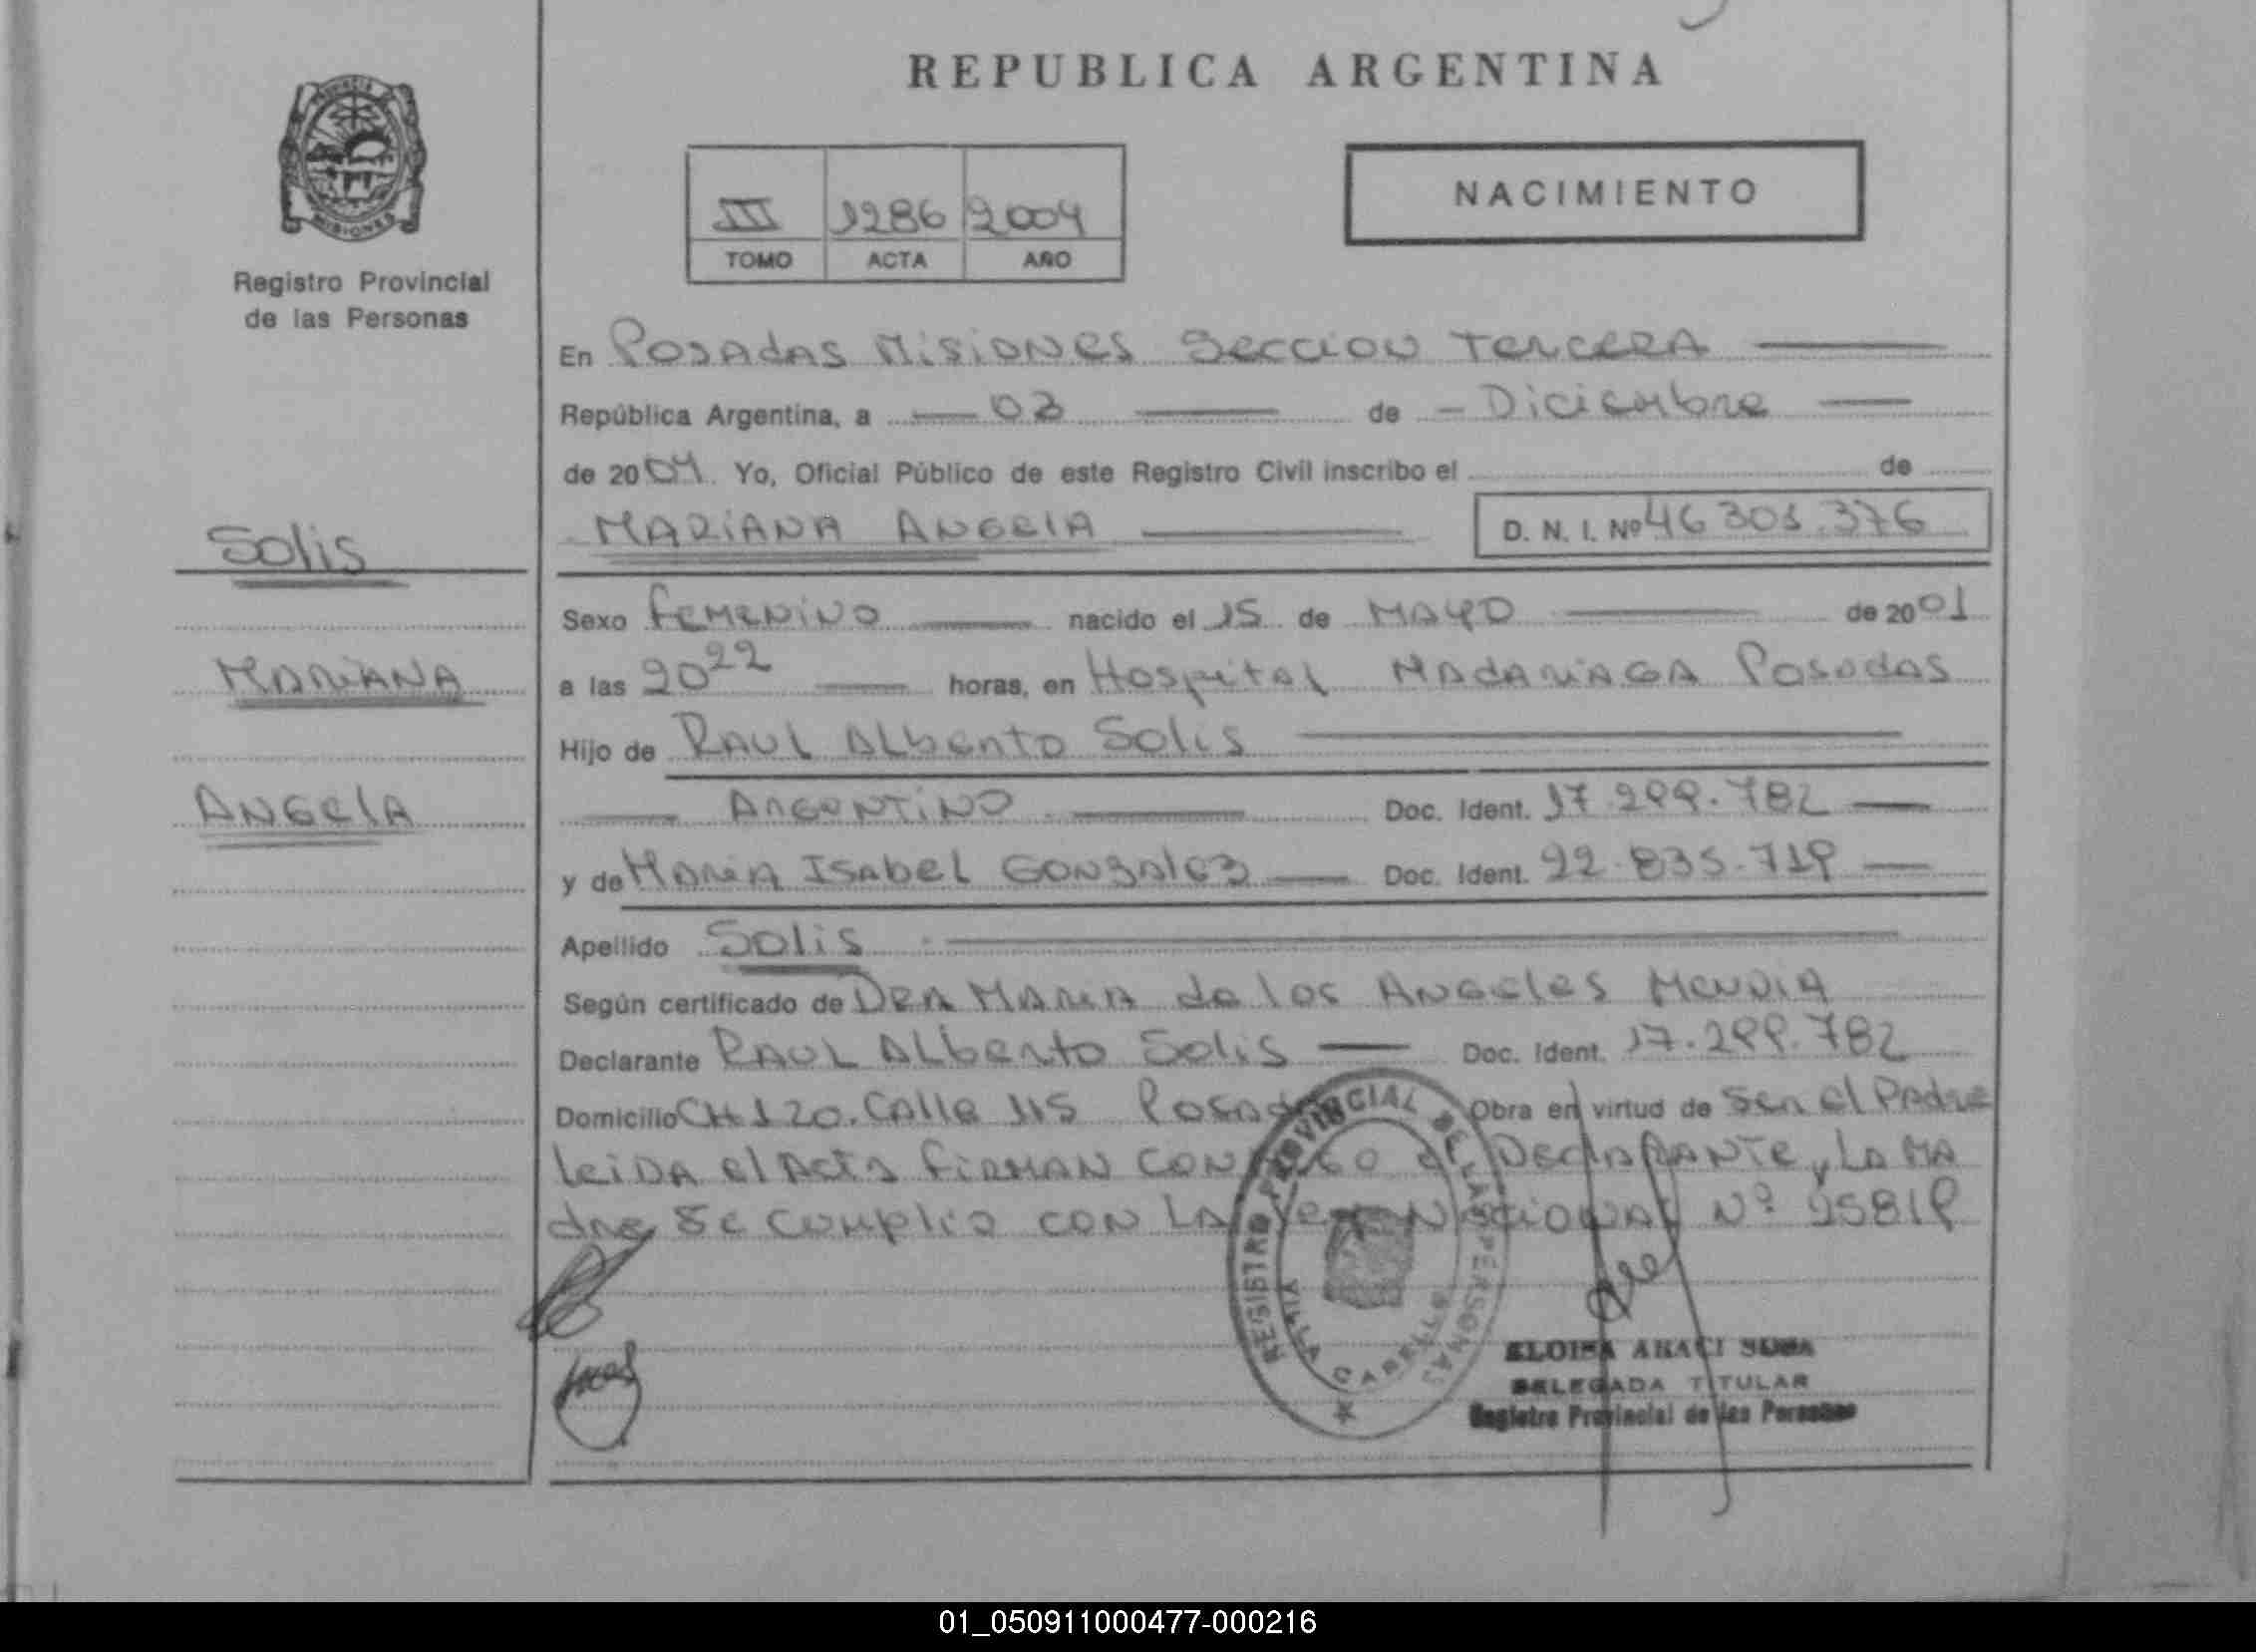 REPUBLICA ARGENTINA
PROVINCIA DE
MISIONES
Registro Provincial
de las Personas
III 1286 2004
TOMO ACTA AÑO
NACIMIENTO
En Posadas Misiones Seccion Tercera
República Argentina, a 03 de Diciembre
de 2004. Yo, Oficial Público de este Registro Civil inscribo el de
MARIANA ANGELA D. N. I. Nº 46 301.376
Solis
MARIANA
ANGELA
Sexo Femenino nacido el 15 de MAYO de 2001
a las 20 22 horas, en Hospital MADARIAGA Posadas
Hijo de RAUL ALberto Solis
ARGENTINO Doc. Ident. 17.299.782
y de MARIA ISabel GONZALEZ Doc. Ident. 22.835.719
Apellido Solis
Según certificado de DRA MARIA de los ANGELES MENDIA
Declarante RAUL ALberto Solis Doc. Ident. 17.299.782
Domicilio CH 120. CAlle 115 Obra en virtud de Ser el Padre
leiDA el ActA FIRMAN el DeclARANTE y LA MA
dre Se cumplio CON LA Ley NAcionAl Nº 25819
REGISTRO PROVINCIAL DE LAS PERSONAS
DELEGADA TITULAR
Registro Provincial de las Personas
01_050911000477-000216